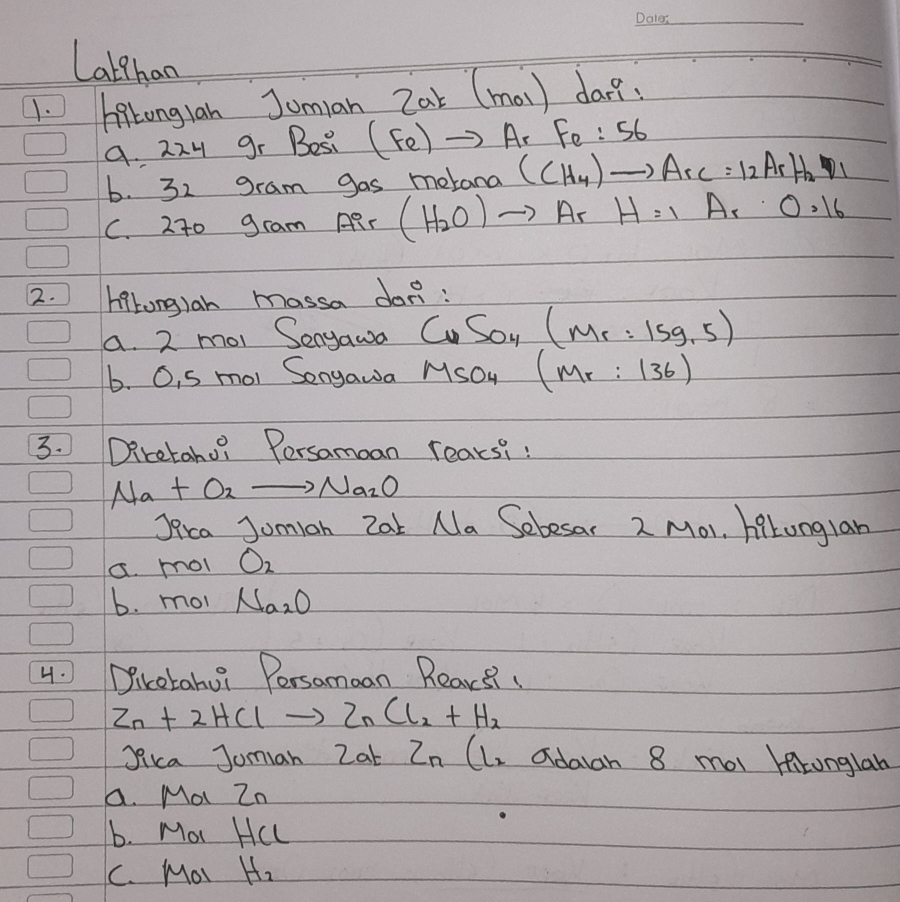 Date:
Latihan
1. hitunglah Jumlah Zat (mol) dari:
a. 224 gr Besi (Fe) → Ar Fe : 56
b. 32 gram gas metana (CH₄) → Ar C = 12 Ar H₂ 1
c. 270 gram Air (H₂O) → Ar H = 1 Ar O = 16
2. hitunglah massa dari:
a. 2 mol Senyawa CuSO₄ (Mr : 159,5)
b. 0,5 mol Senyawa MSO₄ (Mr : 136)
3. Diketahui Persamaan reaksi:
Na + O₂ → Na₂O
Jika Jumlah Zat Na Sebesar 2 Mol. hitunglah
a. mol O₂
b. mol Na₂O
4. Diketahui Persamaan Reaksi:
Zn + 2HCl → ZnCl₂ + H₂
Jika Jumlah Zat ZnCl₂ adalah 8 mol hitunglah
a. Mol Zn
b. Mol HCl
c. Mol H₂